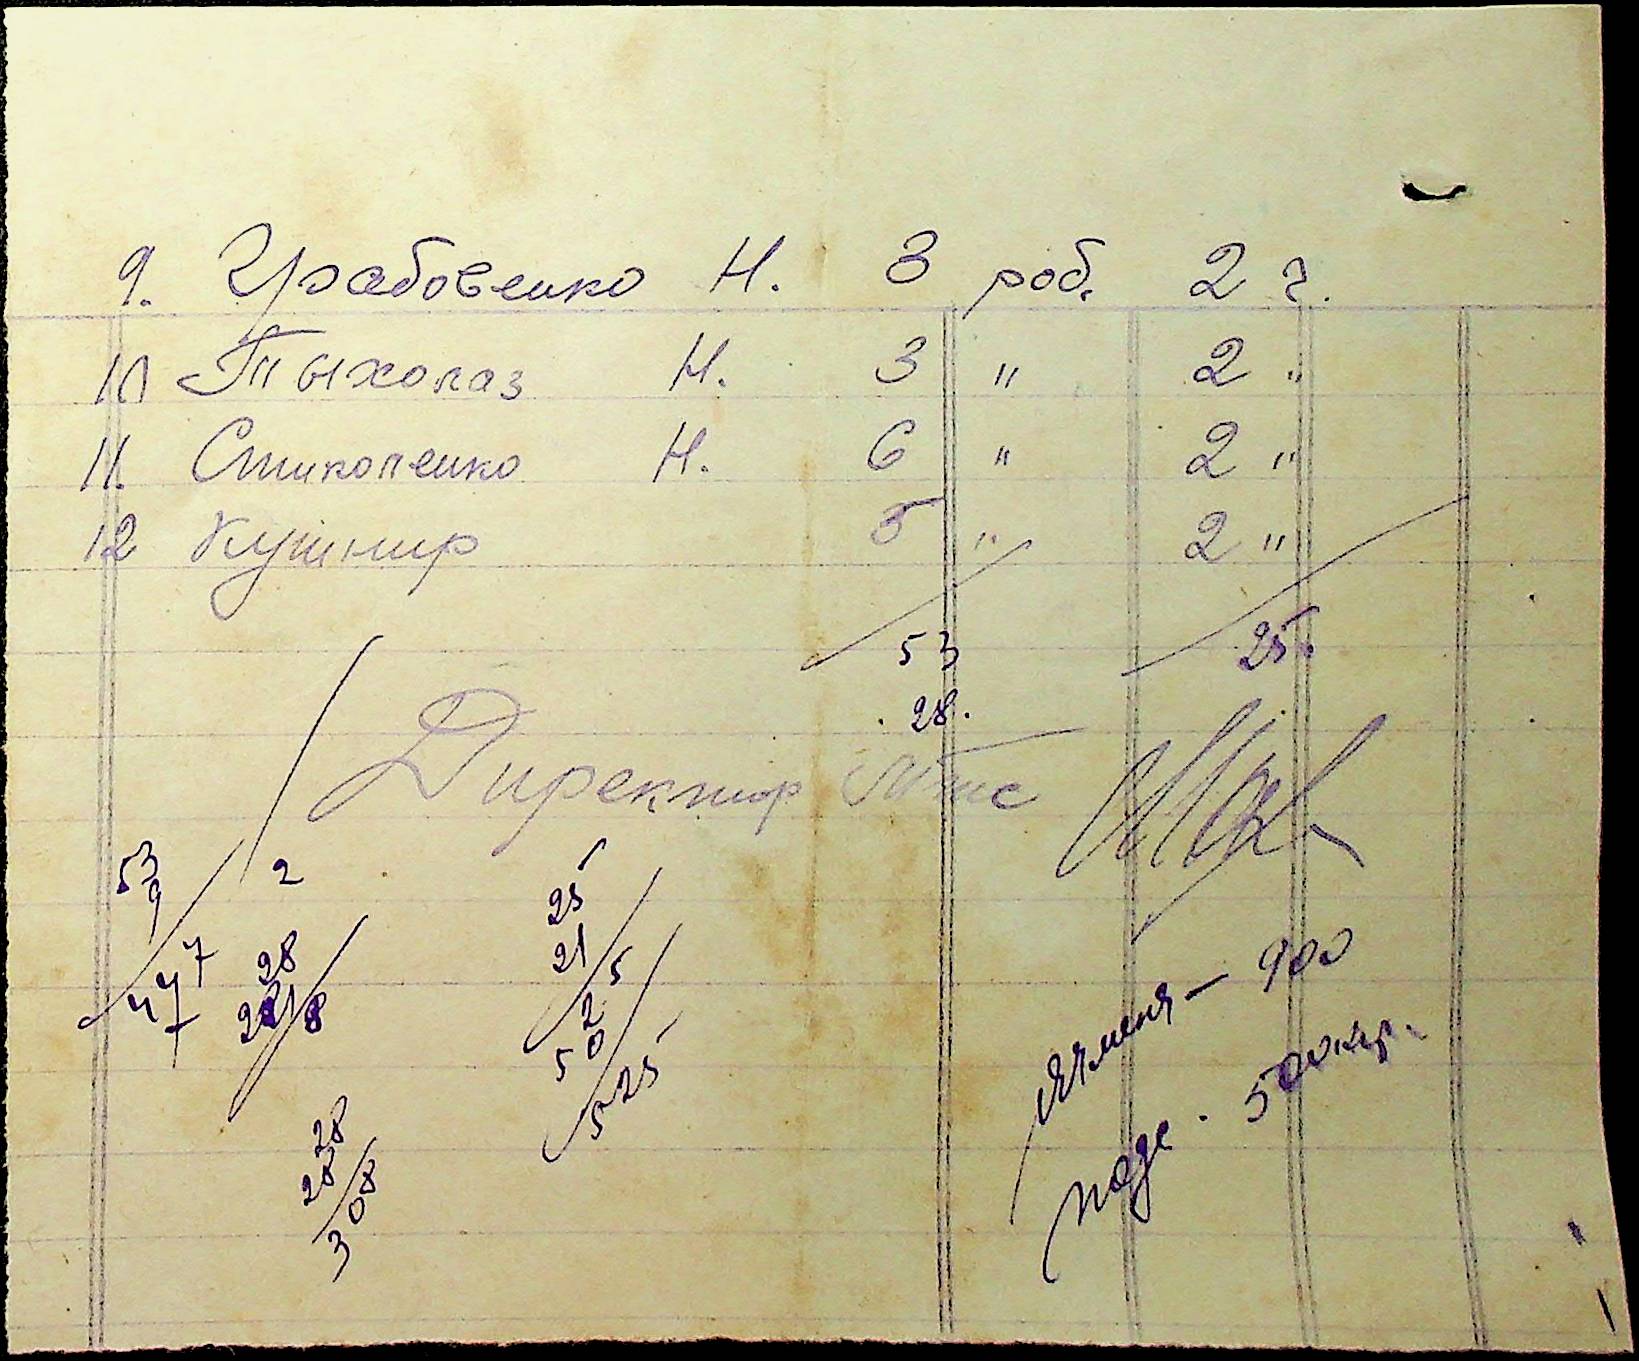 9. Грабовенко Н. 3 роб. 2 г.
10 Тыхолаз Н. 3 " 2 "
11. Стикопенко Н. 6 " 2 "
12 Кушнир 5 " 2 "
53 25.
28.
Директор Мтс
53 2
9
477
28
25
21
5
2
50
525
28
28
308
Ячменя - 900
500 кгр.